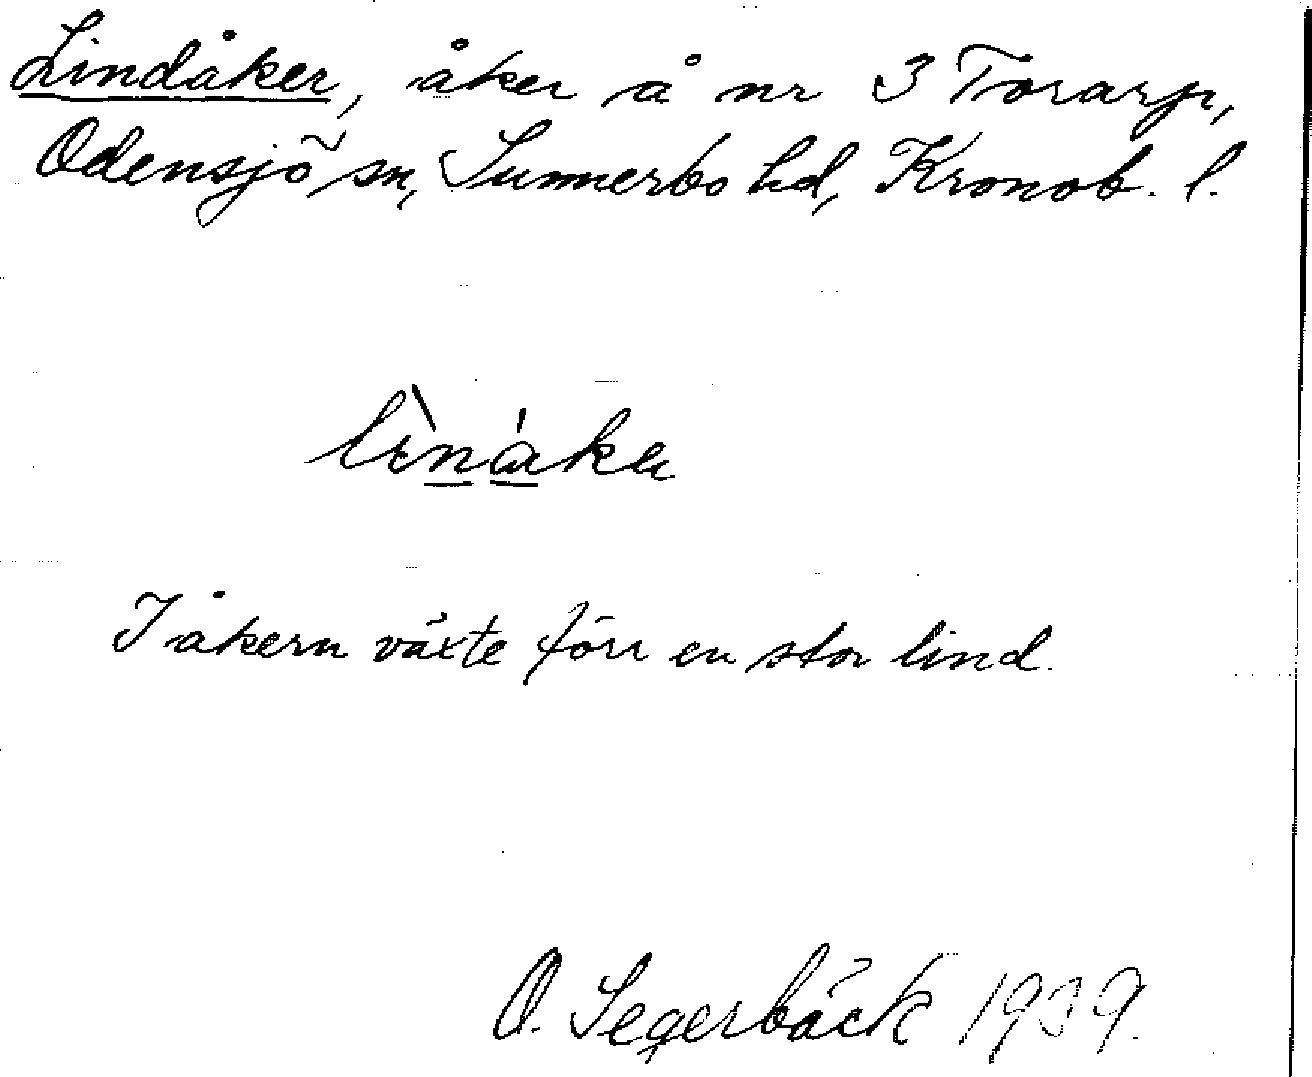 Lindåker, åker å nr 3 Torarp,
Odensjö sn, Sunnerbo hd, Kronob. l.
I åkern växte förr en stor lind.
O. Segerbäck 1939.